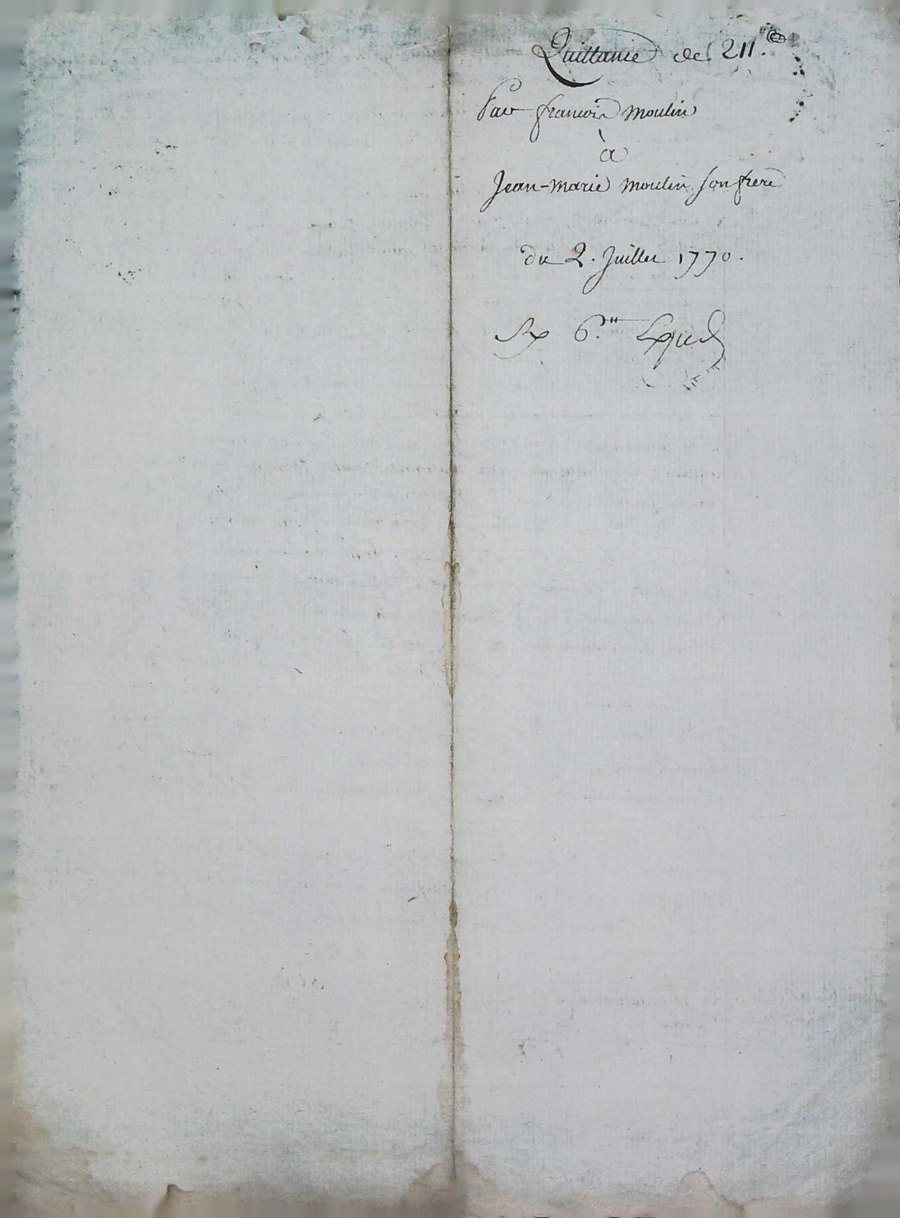 Quittance de 211.
Par francois Moulin
à
Jean-Marie Moulin son frere
du 2. Juillet 1770.